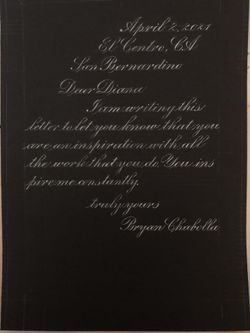 April 2, 2021
El Centro, CA
San Bernardino
Dear Diana
I am writing this
letter to let you know that you
are an inspiration with all
the work that you do. You ins
pire me constantly.
truly yours
Bryan Chabolla